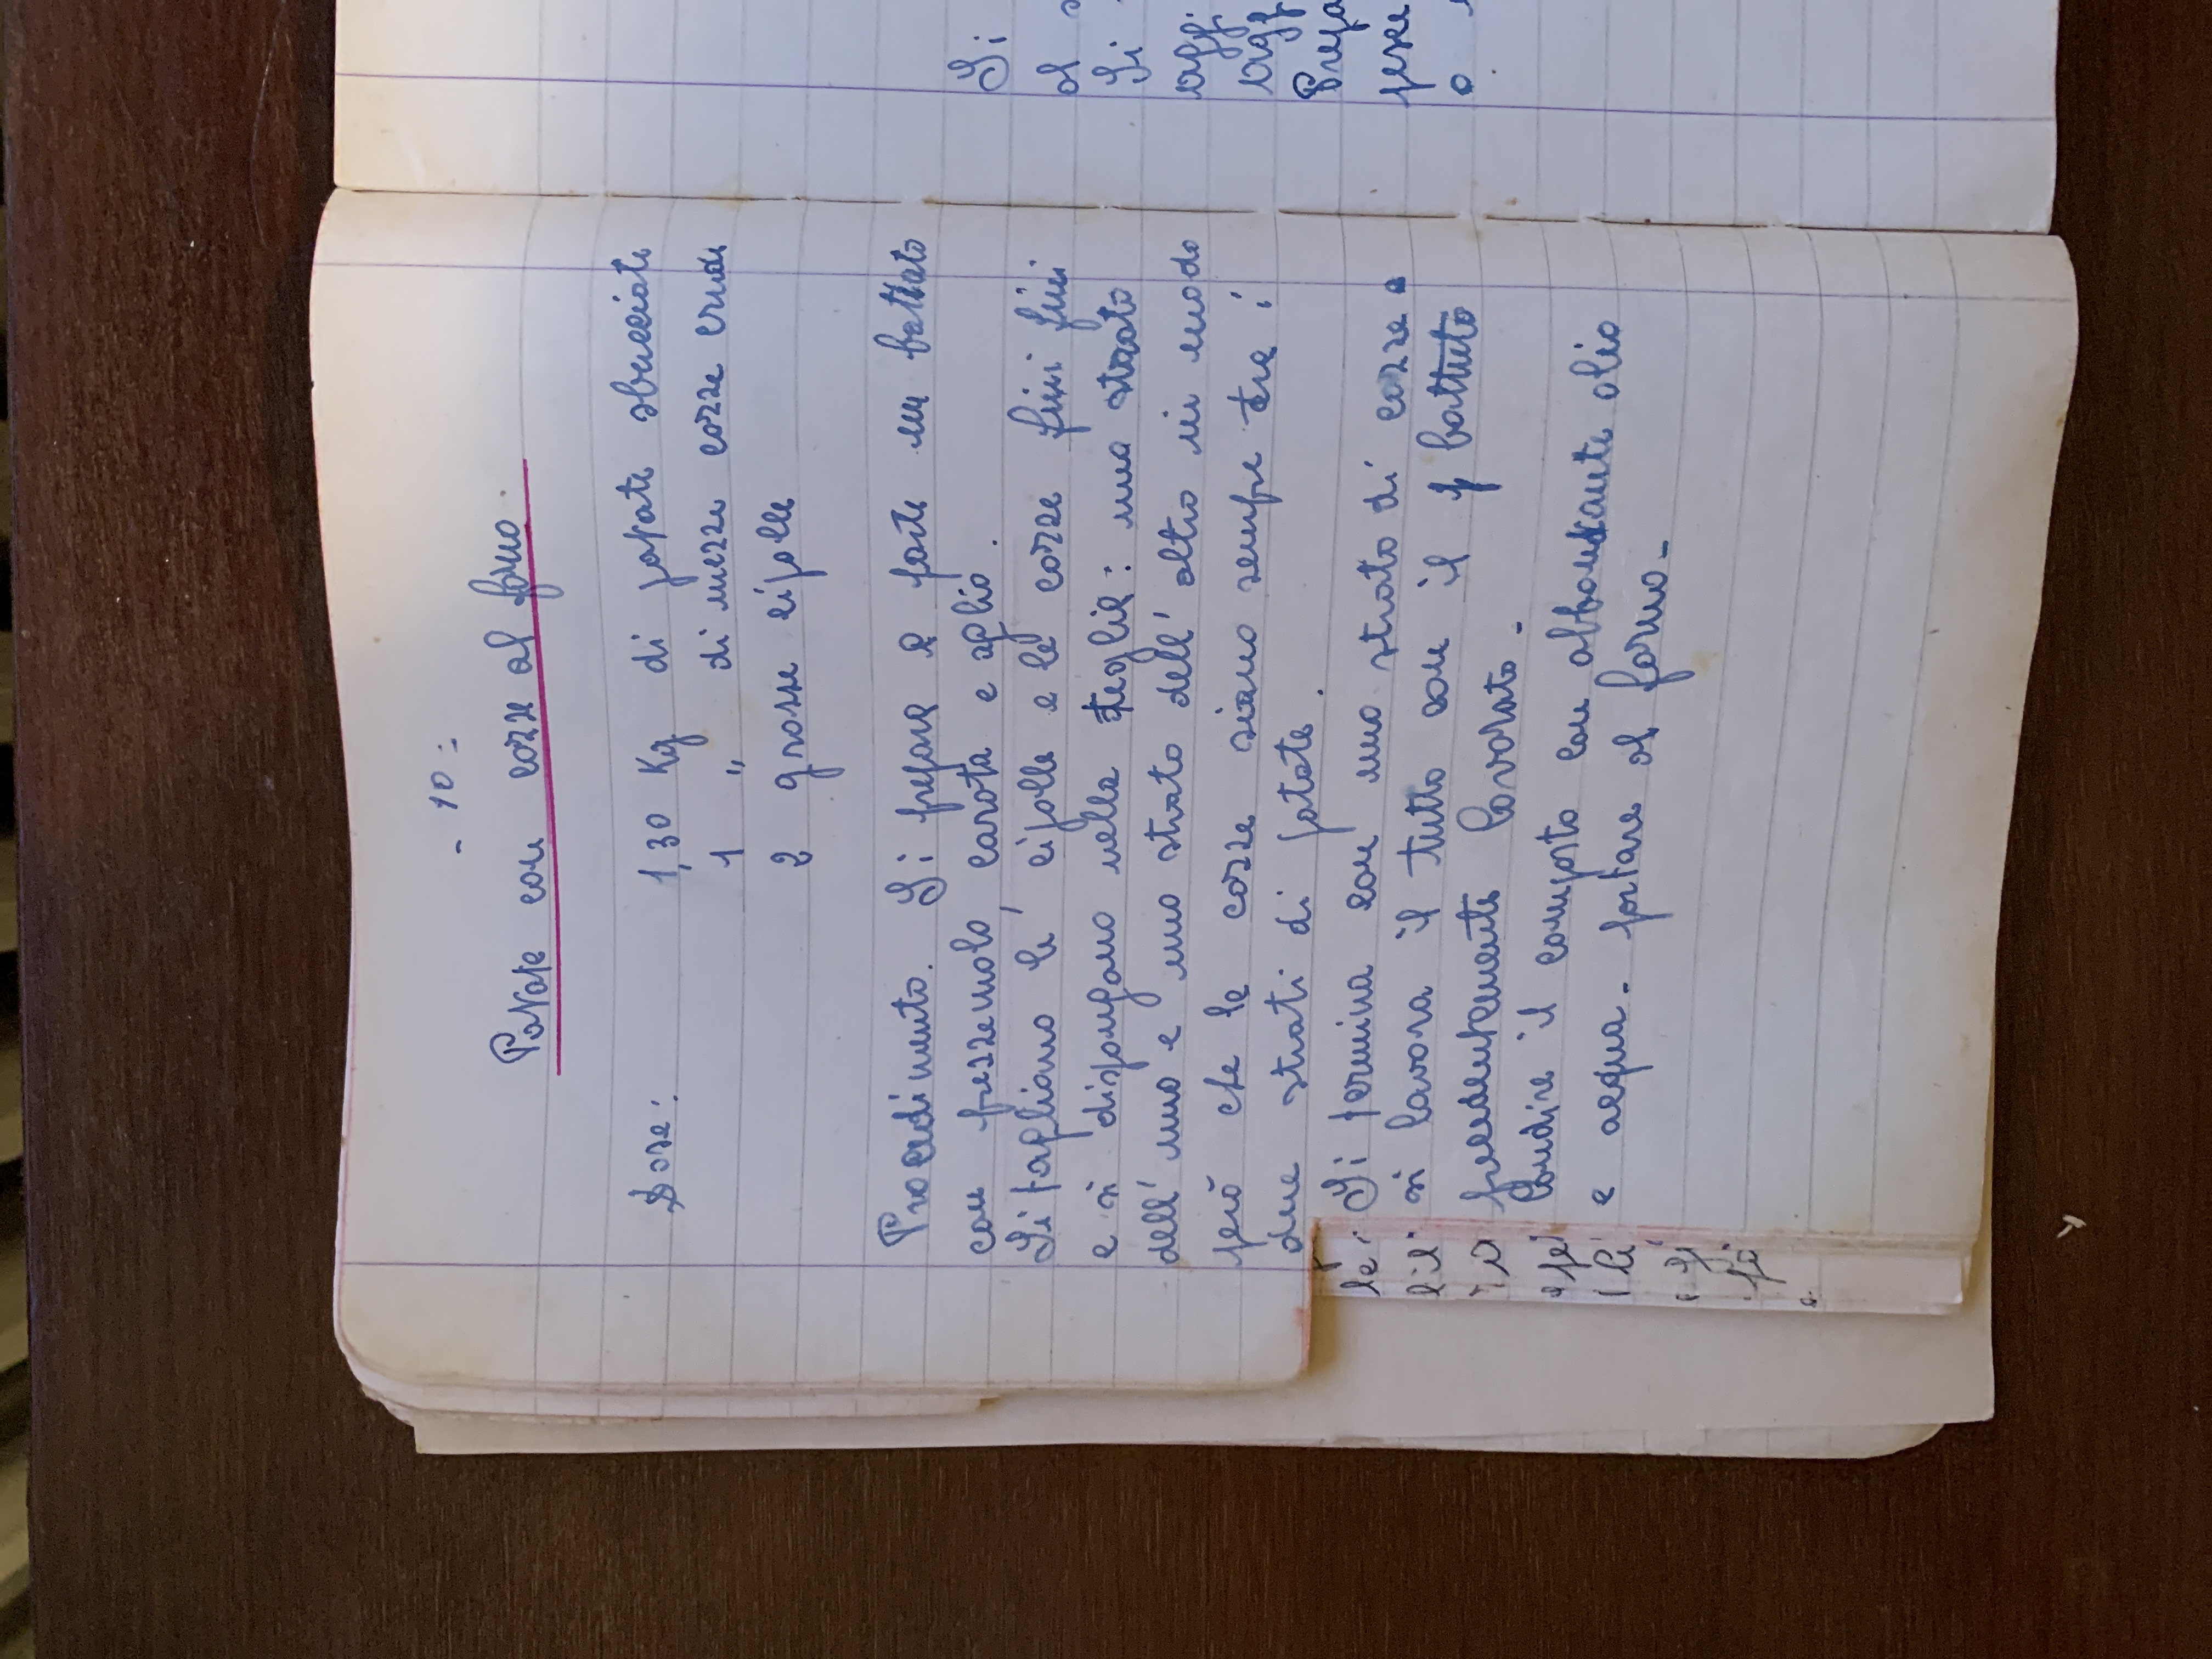 - 10 -
Patate con cozze al forno.
Dose: 1,30 Kg di patate sbucciate
1 " di mezze cozze crude
2 grosse cipolle
Procedimento. Si prepara a parte un battuto
con prezzemolo, carota e aglio.
Si tagliano le cipolle e le cozze fini fini
e si dispongano nella teglia: uno strato
dell'uno e uno strato dell'altro in modo
però che le cozze siano sempre tra i
due strati di patate.
Si termina con uno strato di cozze e
si lavora il tutto con il battuto
precedentemente lavorato -
Condire il composto con abbondante olio
e acqua - portare al forno -
le
li
fo
Si
al
Si
aggi
agg
Prepa
pesce
o